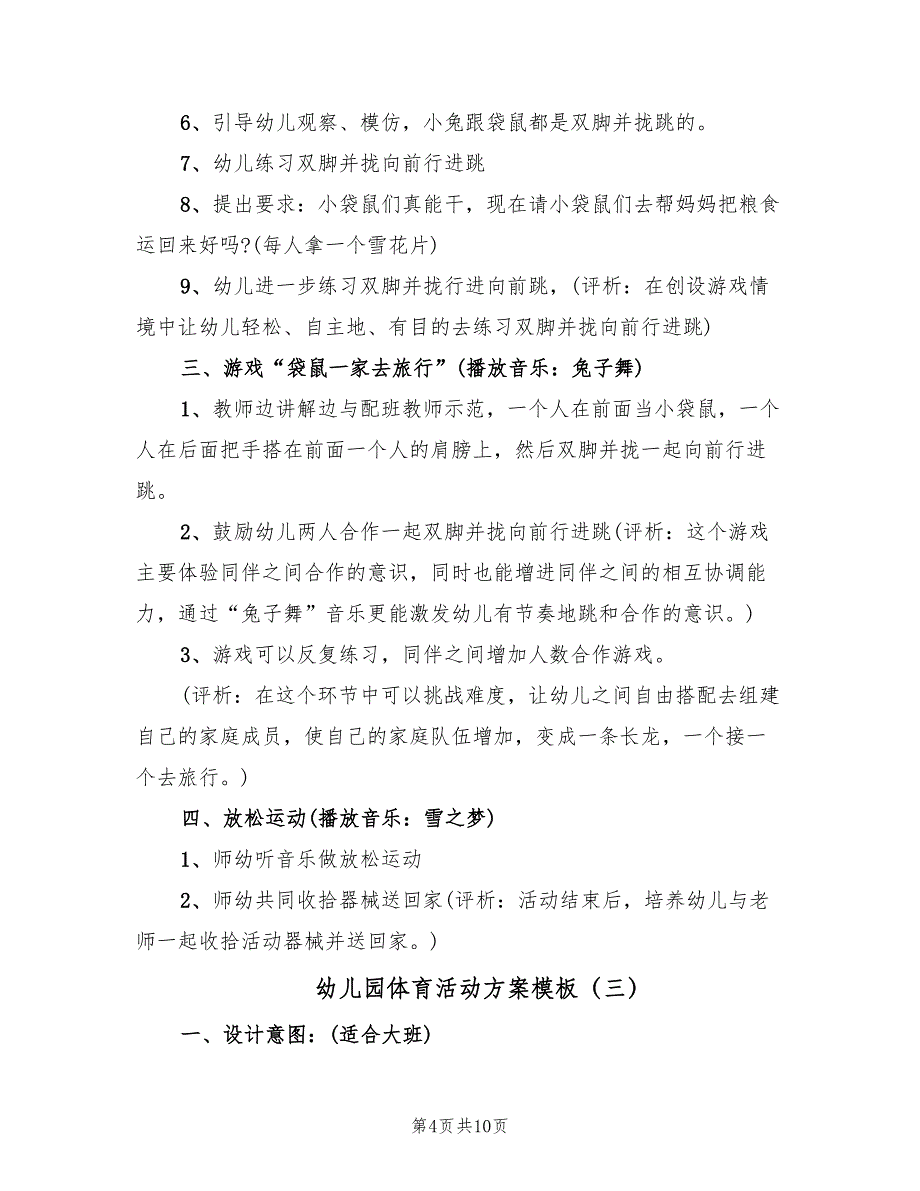 6、引导幼儿观察、模仿，小兔跟袋鼠都是双脚并拢跳的。
7、幼儿练习双脚并拢向前行进跳
8、提出要求：小袋鼠们真能干，现在请小袋鼠们去帮妈妈把粮食
运回来好吗?(每人拿一个雪花片)
9、幼儿进一步练习双脚并拢行进向前跳，(评析：在创设游戏情
境中让幼儿轻松、自主地、有目的去练习双脚并拢向前行进跳)
三、游戏“袋鼠一家去旅行”(播放音乐：兔子舞)
1、教师边讲解边与配班教师示范，一个人在前面当小袋鼠，一个
人在后面把手搭在前面一个人的肩膀上，然后双脚并拢一起向前行进
跳。
2、鼓励幼儿两人合作一起双脚并拢向前行进跳(评析：这个游戏
主要体验同伴之间合作的意识，同时也能增进同伴之间的相互协调能
力，通过“兔子舞”音乐更能激发幼儿有节奏地跳和合作的意识。)
3、游戏可以反复练习，同伴之间增加人数合作游戏。
(评析：在这个环节中可以挑战难度，让幼儿之间自由搭配去组建
自己的家庭成员，使自己的家庭队伍增加，变成一条长龙，一个接一
个去旅行。)
四、放松运动(播放音乐：雪之梦)
1、师幼听音乐做放松运动
2、师幼共同收拾器械送回家(评析：活动结束后，培养幼儿与老
师一起收拾活动器械并送回家。)
幼儿园体育活动方案模板（三）
一、设计意图：(适合大班)
第4页共10页